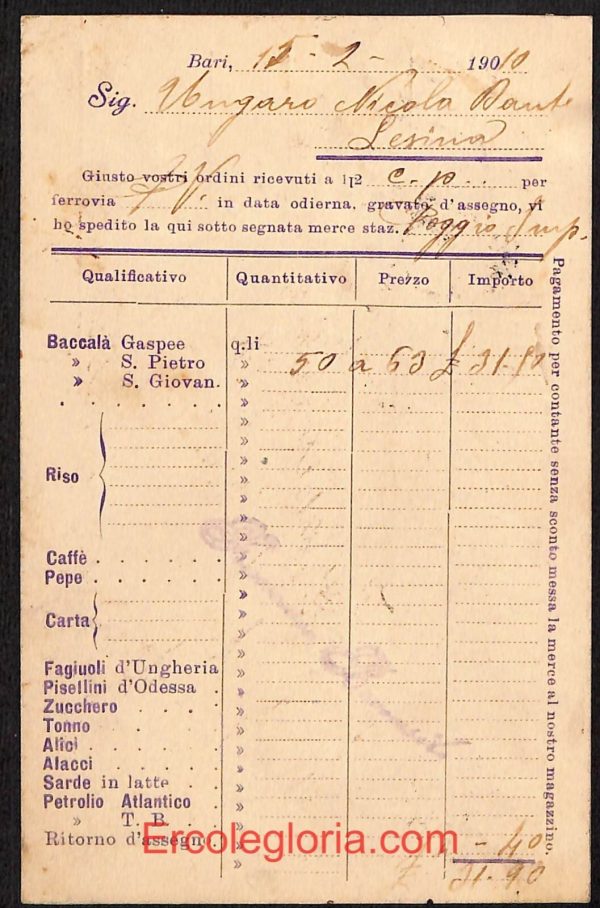 Bari, 15 - 2 - 19010
Sig. Ungaro Nicola Dante
Lesina
Giusto vostri ordini ricevuti a 1|2 c. p. per
ferrovia in data odierna, gravato d'assegno, vi
ho spedito la qui sotto segnata merce staz. Poggio Imp.
Qualificativo Quantitativo Prezzo Importo
Baccalà Gaspee q.li
» S. Pietro » 50 a 63 £ 31.50
» S. Giovan. »
»
»
»
Riso »
»
»
»
Caffè »
Pepe »
»
Carta »
»
Fagiuoli d'Ungheria »
Pisellini d'Odessa »
Zucchero »
Tonno »
Alici »
Alacci »
Sarde in latte »
Petrolio Atlantico »
» T. B. »
Ritorno d'assegno. » - 40
» 31.90
Pagamento per contante senza sconto messa la merce al nostro magazzino.
Ercolegloria.com